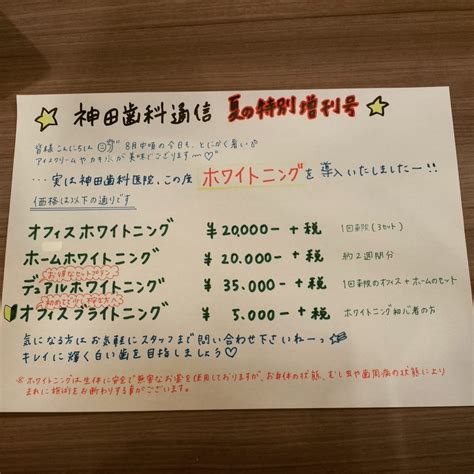 神田歯科通信 夏の特別増刊号
皆様こんにちは 8月中頃の今日も、とにかく暑い
アイスクリームやカキ氷が美味でございます〜♡
…実は神田歯科医院、この度 ホワイトニングを導入いたしましたー!!
(価格は)以下の通りです
オフィスホワイトニング ¥20,000- +税 1回来院(3セット)
ホームホワイトニング ¥20.000- +税 約2週間分
お得なセットプラン
デュアルホワイトニング ¥35.000- +税 1回来院のオフィス+ホームのセット
初めてで少し不安な方へ
オフィスブライトニング ¥5.000- +税 ホワイトニング初心者の方
気になる方はお気軽にスタッフまで問い合わせ下さいねーっ
キレイに輝く白い歯を目指しましょう♡
※ホワイトニングは生体に安全で無害なお薬を使用しておりますが、お身体の状態、むし歯や歯周病の状態により
まれに施術をお断りする事がございます。